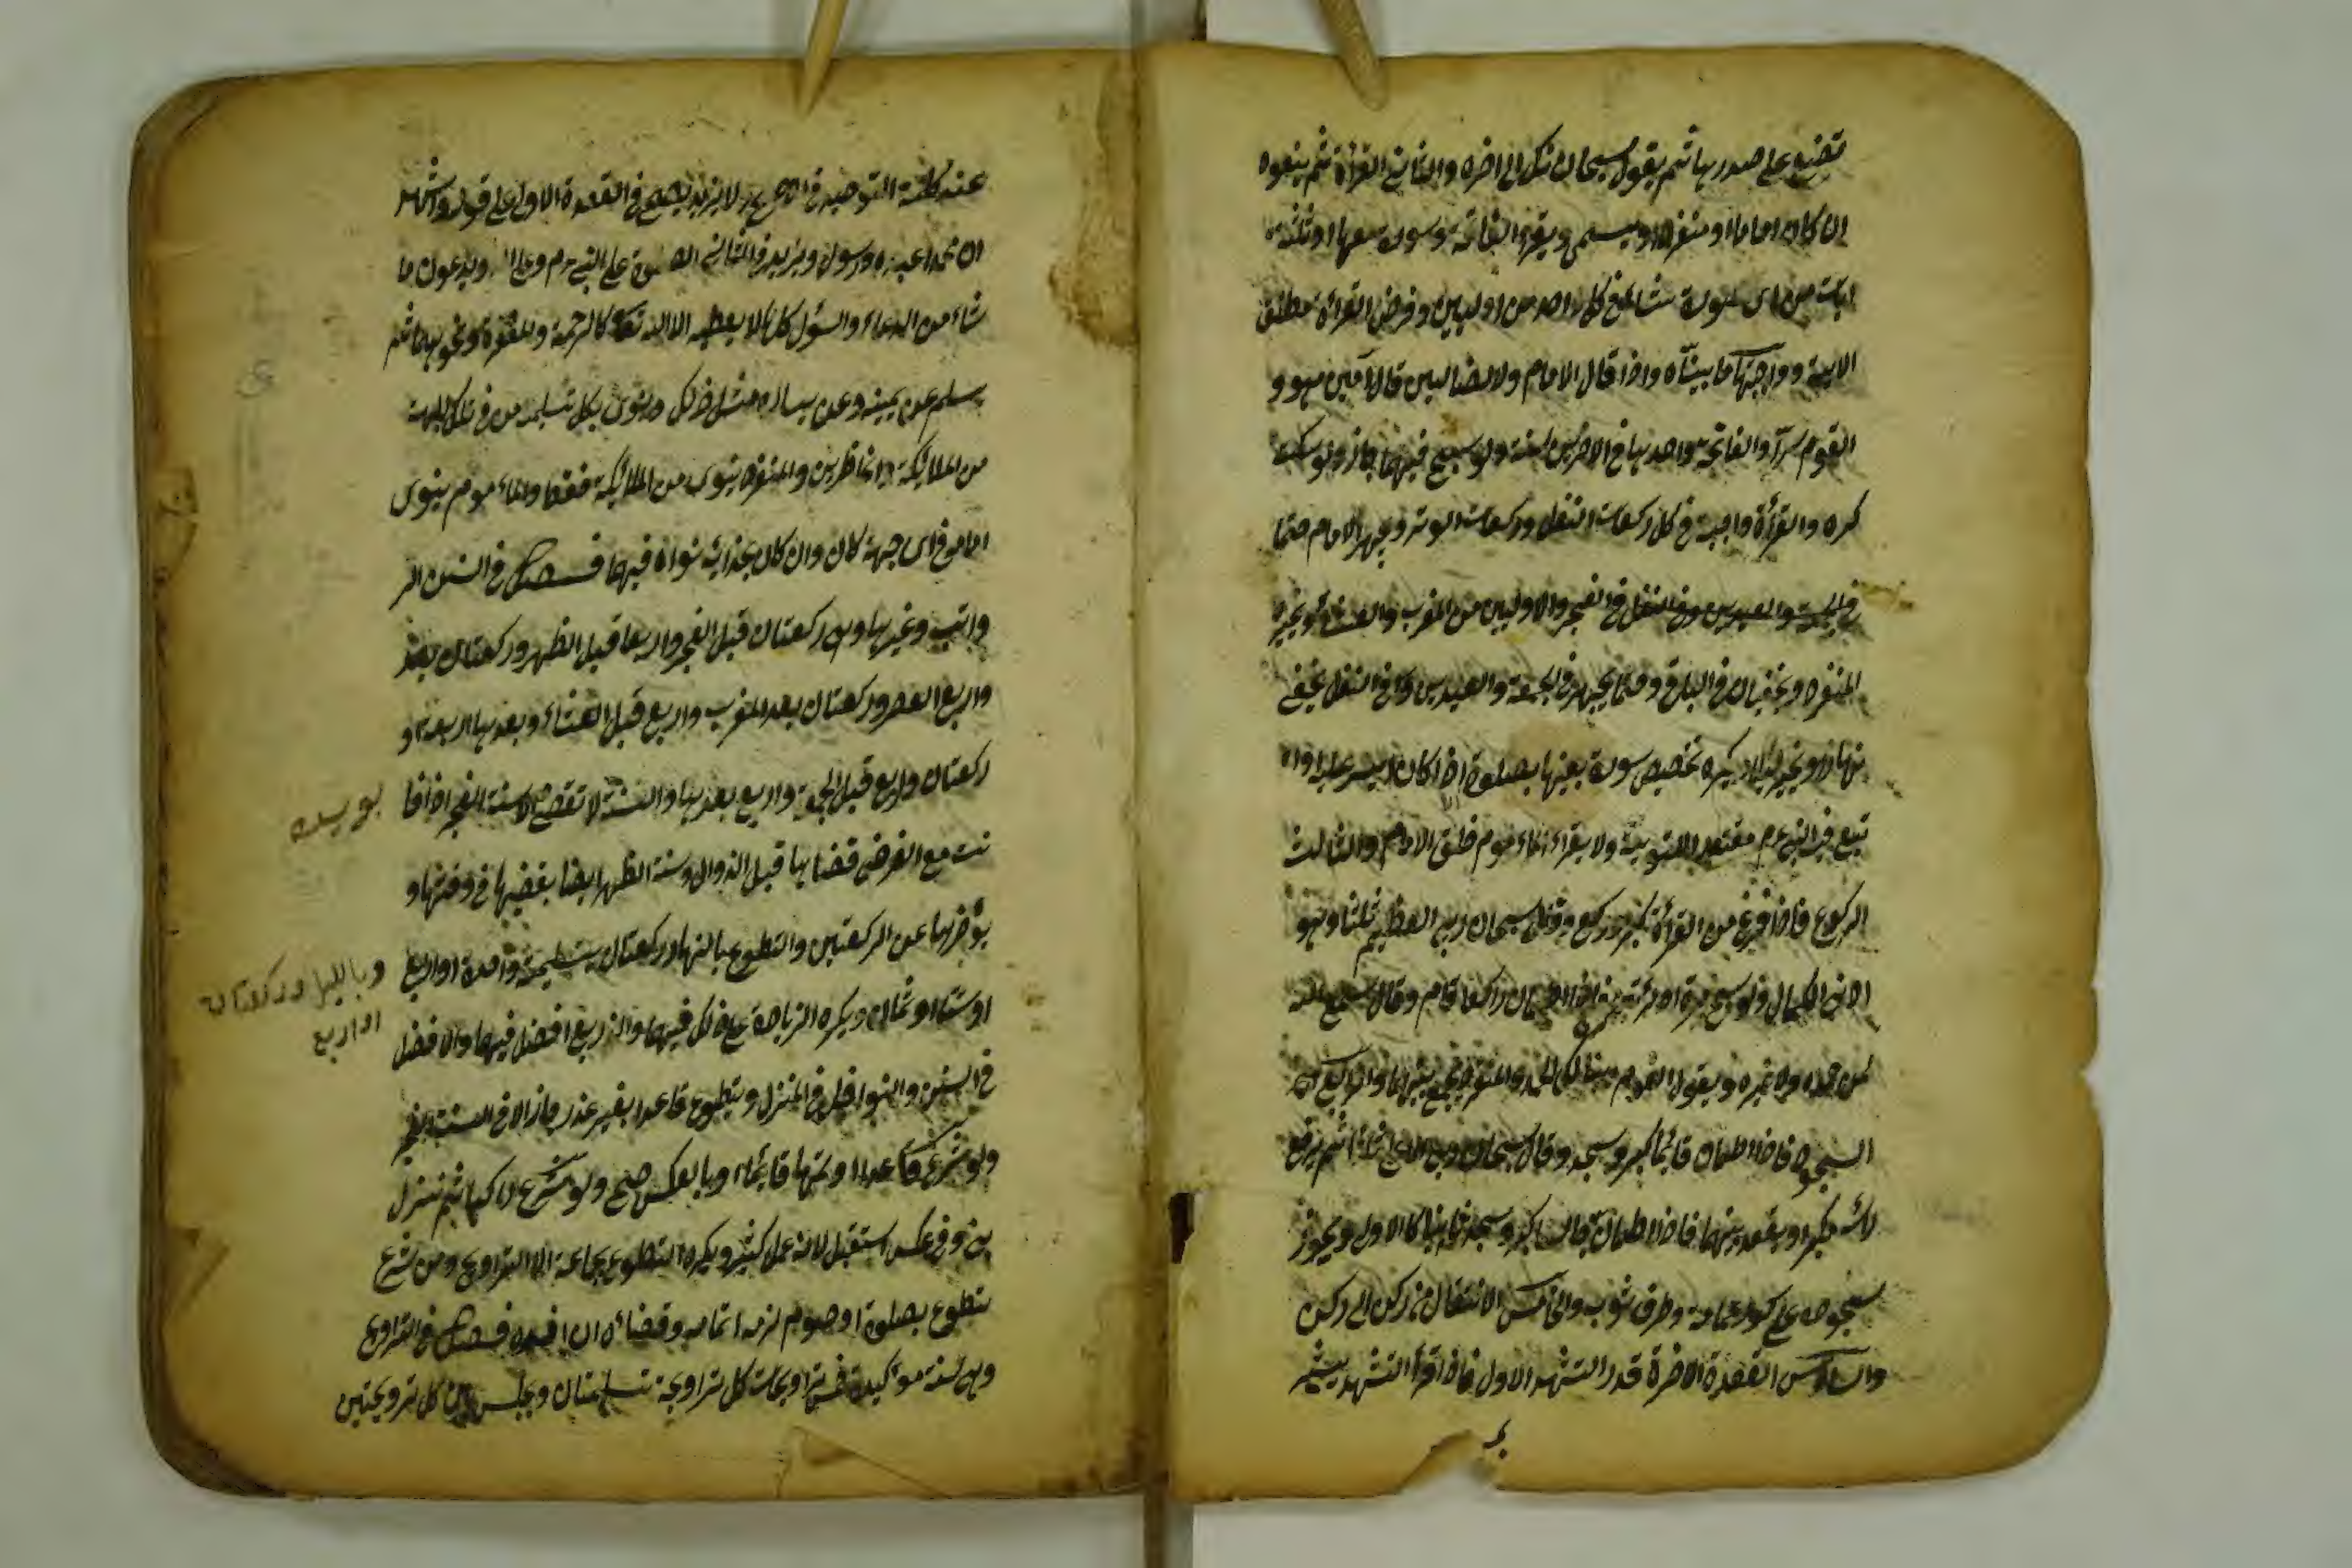 تضع على صدرها ثم يقول سبحانك الى اخره والثاني القرأة ثم يتعوذ
ان كان اماما او منفردا ويسمى ويقرء الفاتحة وسورة معها او ثلثة
ايات من اى سورة شاء في كل واحد من اوليين وفرض القرأة مطلق
الاية وواجبها ما بيناه واذا قال الامام ولا الضالين قال آمين هو و
القوم سرآ والفاتحة واحدها في الاخريين سنة ولو سبح فيهما جاز ولو سكت
كره والقرأة واجبة في كل ركعات النفل وركعات الوتر ويجهر الامام حتما
في الفجر والاوليين من المغرب والعشاء ويخير
المنفرد ويخفيان في الباقى وحتما يجهر في الجمعة والعيدين وفي النفل يخفى
نهارا ويخير ليلا ويكره تخصيص سورة بعينها بصلوة الا اذا كان ايسر عليه او
تبع فيه النبي عم معتقدا للتسوية ولا يقرء المأموم خلف الامام والثالث
الركوع فاذا فرغ من القرأة كبر وركع وقال سبحان ربي العظيم ثلثا وهو
ادنى الكمال ولو سبح مرة او تركه فاذا اطمان راكعا قام وقال سمع الله
لمن حمده ولا غيره ويقول القوم ربنا لك الحمد والمنفرد يجمع بينهما والرابع
السجود فاذا اطمان قائما كبر وسجد وقال سبحان ربي الاعلى ثلاثا ثم يرفع
رأسه مكبرا ويقعد بينهما فاذا اطمان جالسا كبر وسجد ثانيا كالاول ويجوز
سجوده على كور عمامة وطرف ثوبه والخامس الانتقال من ركن الى ركن
والسادس القعدة الاخرة قدر التشهد الاول فاذا قرأ التشهد يشير
عند كلمة التوحيد في الاصح ولا يزيد في القعدة الاولى على قوله واشهد
ان محمدا عبده ورسوله ويزيد في الثاني الصلوة على النبي عم وعلى اله ويدعو بما
شاء من الدعاء والسؤل كل ما لا يعطيه الا الله تعالى كالرحمة والمغفرة ونحوهما ثم
يسلم عن يمينه وعن يساره مثل ذلك وينوى بكل تسليمة من في تلك الجهة
من الملائكة والحاضرين والمنفرد ينوى من الملائكة فقط والمأموم ينوى
امامه في اى جهة كان وان كان بحذائه نواه فيهما فصل في السنن الر
واتب وغيرها وهي ركعتان قبل الفجر واربعا قبل الظهر وركعتان بعد
واربع العصر وركعتان بعد المغرب واربع قبل العشاء وبعدها اربعة او
ركعتان واربع قبل الجمعة واربع بعدها والسنة لا تقضى الا سنة الفجر اذا فا
تت مع الفرض قضاها قبل الزوال وسنة الظهر ايضا يقضيها في وقتها و
يؤخرها عن الركعتين والتطوع بالنهار ركعتان بتسليمة واحدة او اربع
وبالليل ركعتان
او اربع
او ستا او ثمان ويكره الزيادة على ذلك فيهما والاربع افضل فيهما والافضل
في السنن والنوافل في المنزل ويتطوع قاعدا بغير عذر جاز الا في السنة الفجر
ولو شرع قاعدا واتمها قائما او بالعكس صح ولو شرع راكبا ثم نزل
بنى وفي عكسه استقبل لانه عمل كثير ويكره التطوع بجماعة الا التراويح ومن شرع
بتطوع بصلوة او صوم لزمه اتمامه وقضاءه ان افسده فصل في التراويح
وهي سنة مؤكدة خمس تراويحات كل تراويحة تسليمتان ويجلس بين كل ترويحتين